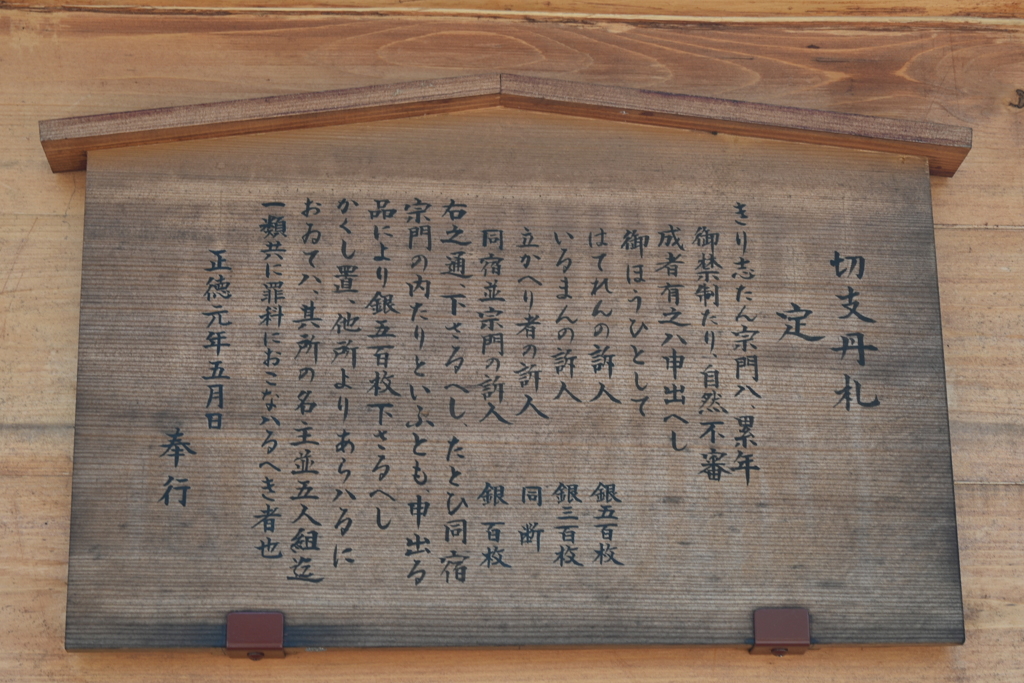 切支丹札
定
きり志たん宗門八、累年
御禁制たり、自然不審
成者有之ハ申出へし
御ほうひとして
はてれんの訴人 銀五百枚
いるまんの訴人 銀三百枚
立かへり者の訴人 同断
同宿並宗門の訴人 銀百枚
右之通、下さるへし、たとひ同宿
宗門の内たりといふとも、申出る
品により銀五百枚下さるへし
かくし置、他所よりあらハるに
おゐてハ、其所の名主並五人組迄
一類共に罪科におこなハるへき者也
正徳元年五月日
奉行